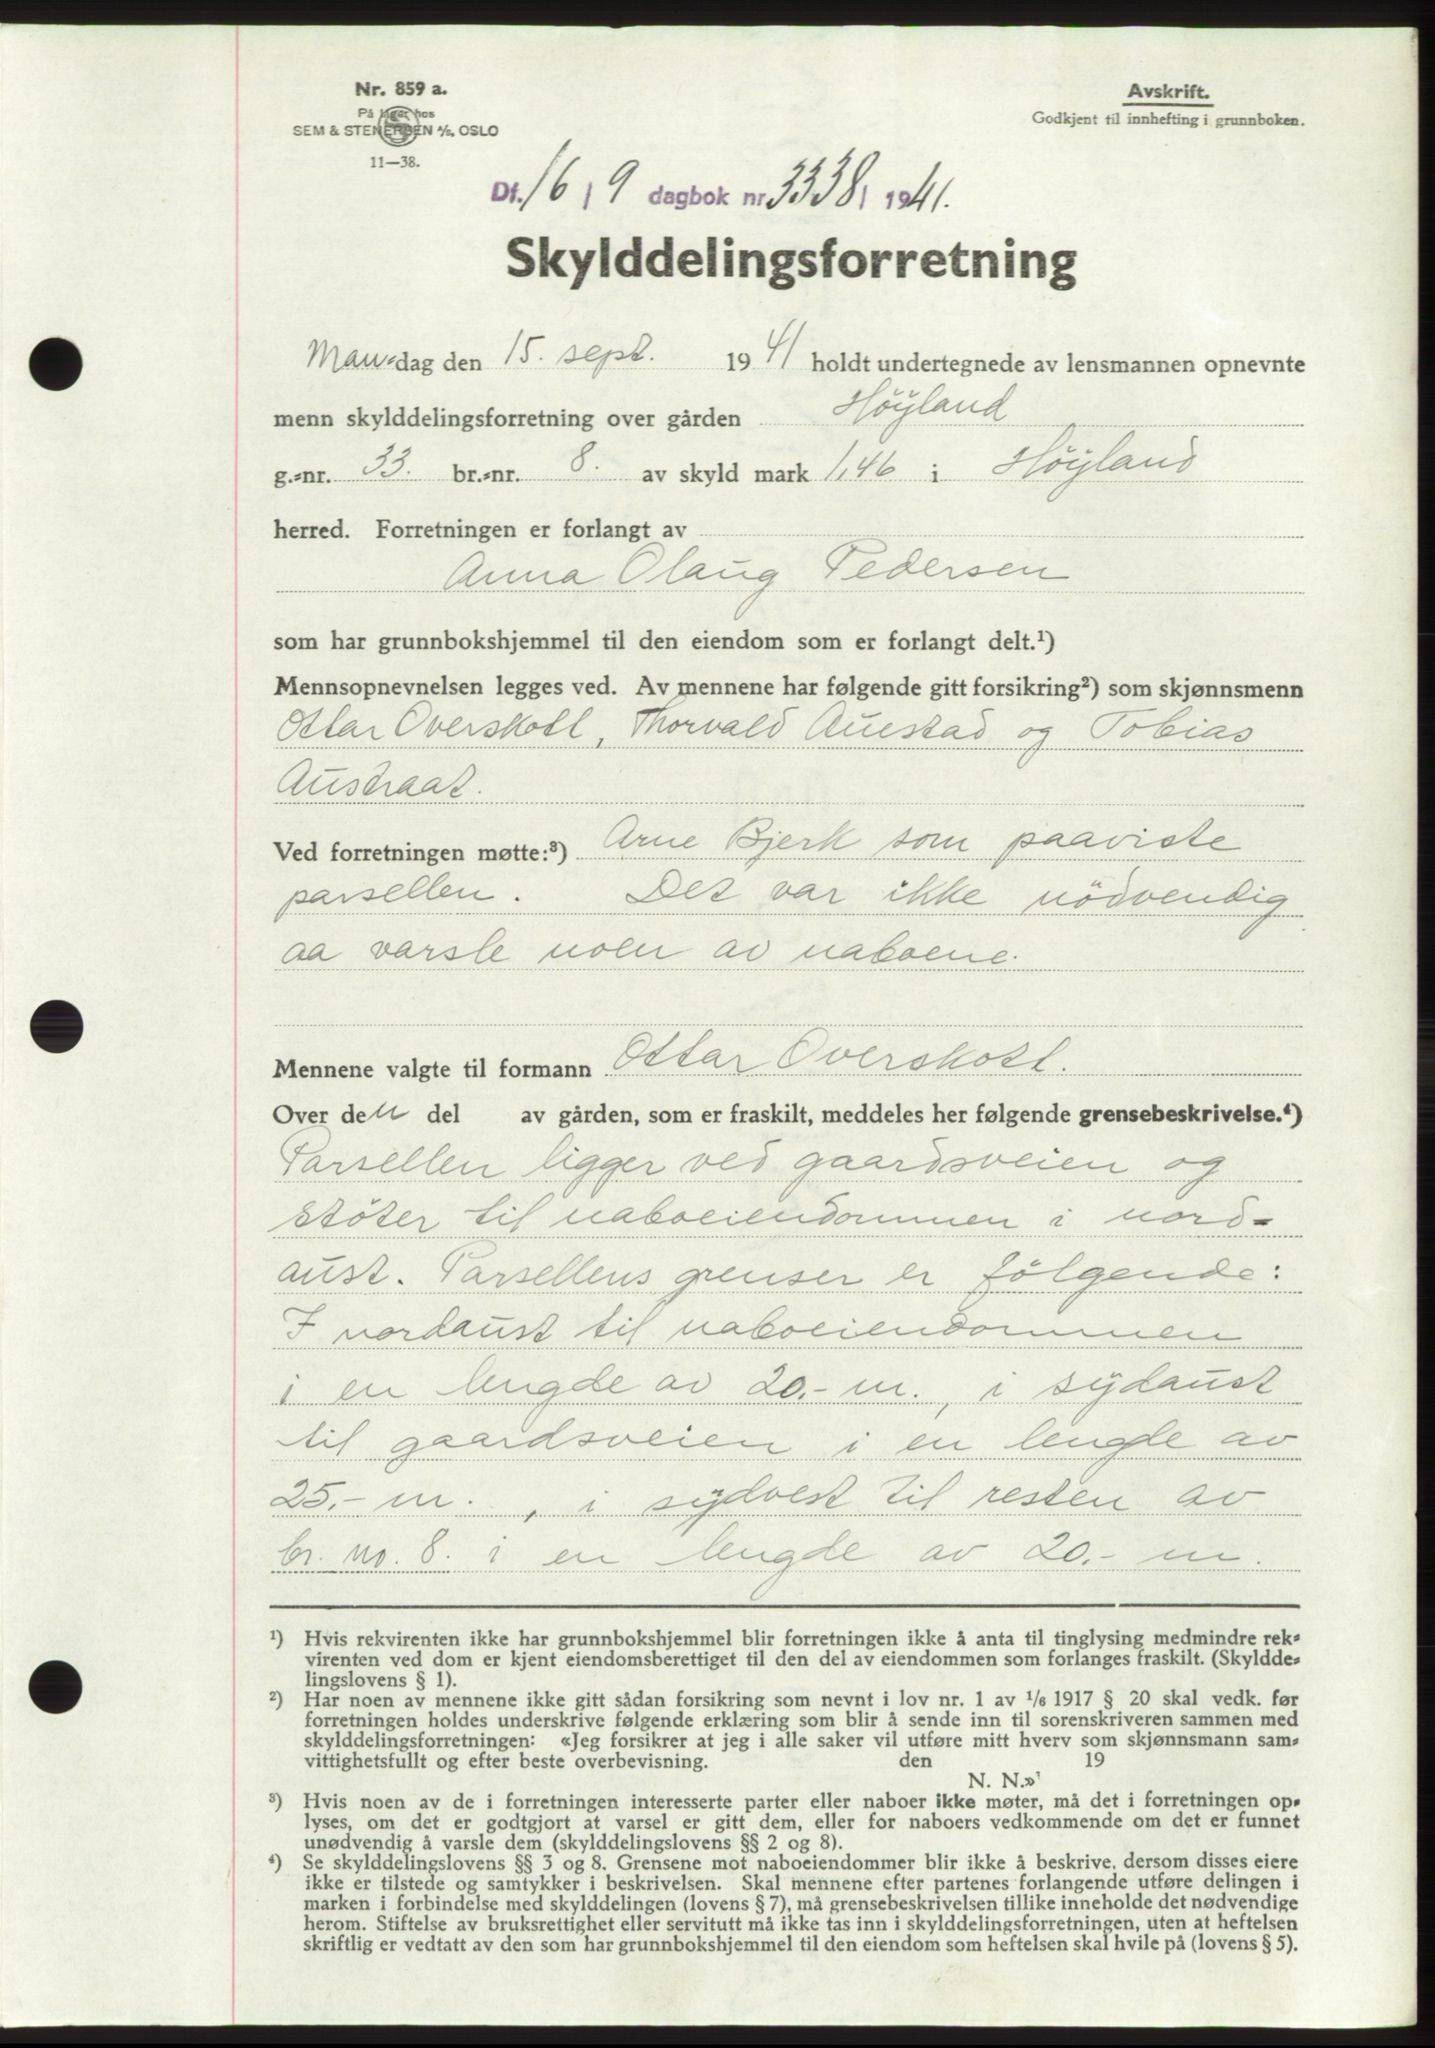 Nr. 859 a.
På lager hos
SEM & STENERSEN A/S, OSLO
11—38.
Avskrift.
Godkjent til innhefting i grunnboken.
Df. 16 / 9 dagbok nr 3338 / 1941.
Skylddelingsforretning
Man-dag den 15. sept. 1941 holdt undertegnede av lensmannen opnevnte
menn skylddelingsforretning over gården Höyland
g.-nr. 33. br.-nr. 8. av skyld mark 1,46 i Höyland
herred. Forretningen er forlangt av
Anna Olaug Pedersen
som har grunnbokshjemmel til den eiendom som er forlangt delt.¹)
Mennsopnevnelsen legges ved. Av mennene har følgende gitt forsikring²) som skjønnsmenn
Ottar Overskott, Thorvald Auestad og Tobias
Austraat.
Ved forretningen møtte:³) Arne Bjerk som paaviste
parsellen. Det var ikke nödvendig
aa varsle noen av naboene.
Mennene valgte til formann Ottar Overskott.
Over den del av gården, som er fraskilt, meddeles her følgende grensebeskrivelse.⁴)
Parsellen ligger ved gaardsveien og
stöter til naboeiendommen i nord-
aust. Parsellens grenser er fölgende:
I nordaust til naboeiendommen
i en lengde av 20.- m., i sydaust
til gaardsveien i en lengde av
25.- m., i sydvest til resten av
br. no. 8. i en lengde av 20.- m.
¹) Hvis rekvirenten ikke har grunnbokshjemmel blir forretningen ikke å anta til tinglysing medmindre rek-
virenten ved dom er kjent eiendomsberettiget til den del av eiendommen som forlanges fraskilt. (Skyldde-
lingslovens § 1).
²) Har noen av mennene ikke gitt sådan forsikring som nevnt i lov nr. 1 av 1/6 1917 § 20 skal vedk. før
forretningen holdes underskrive følgende erklæring som blir å sende inn til sorenskriveren sammen med
skylddelingsforretningen: «Jeg forsikrer at jeg i alle saker vil utføre mitt hverv som skjønnsmann sam-
vittighetsfullt og efter beste overbevisning. den 19
N. N.»
³) Hvis noen av de i forretningen interesserte parter eller naboer ikke møter, må det i forretningen op-
lyses, om det er godtgjort at varsel er gitt dem, eller for naboers vedkommende om det er funnet
unødvendig å varsle dem (skylddelingslovens §§ 2 og 8).
⁴) Se skylddelingslovens §§ 3 og 8. Grensene mot naboeiendommer blir ikke å beskrive, dersom disses eiere
ikke er tilstede og samtykker i beskrivelsen. Skal mennene efter partenes forlangende utføre delingen i
marken i forbindelse med skylddelingen (lovens § 7), må grensebeskrivelsen tillike inneholde det nødvendige
herom. Stiftelse av bruksrettighet eller servitutt må ikke tas inn i skylddelingsforretningen, uten at heftelsen
skriftlig er vedtatt av den som har grunnbokshjemmel til den eiendom som heftelsen skal hvile på (lovens § 5).